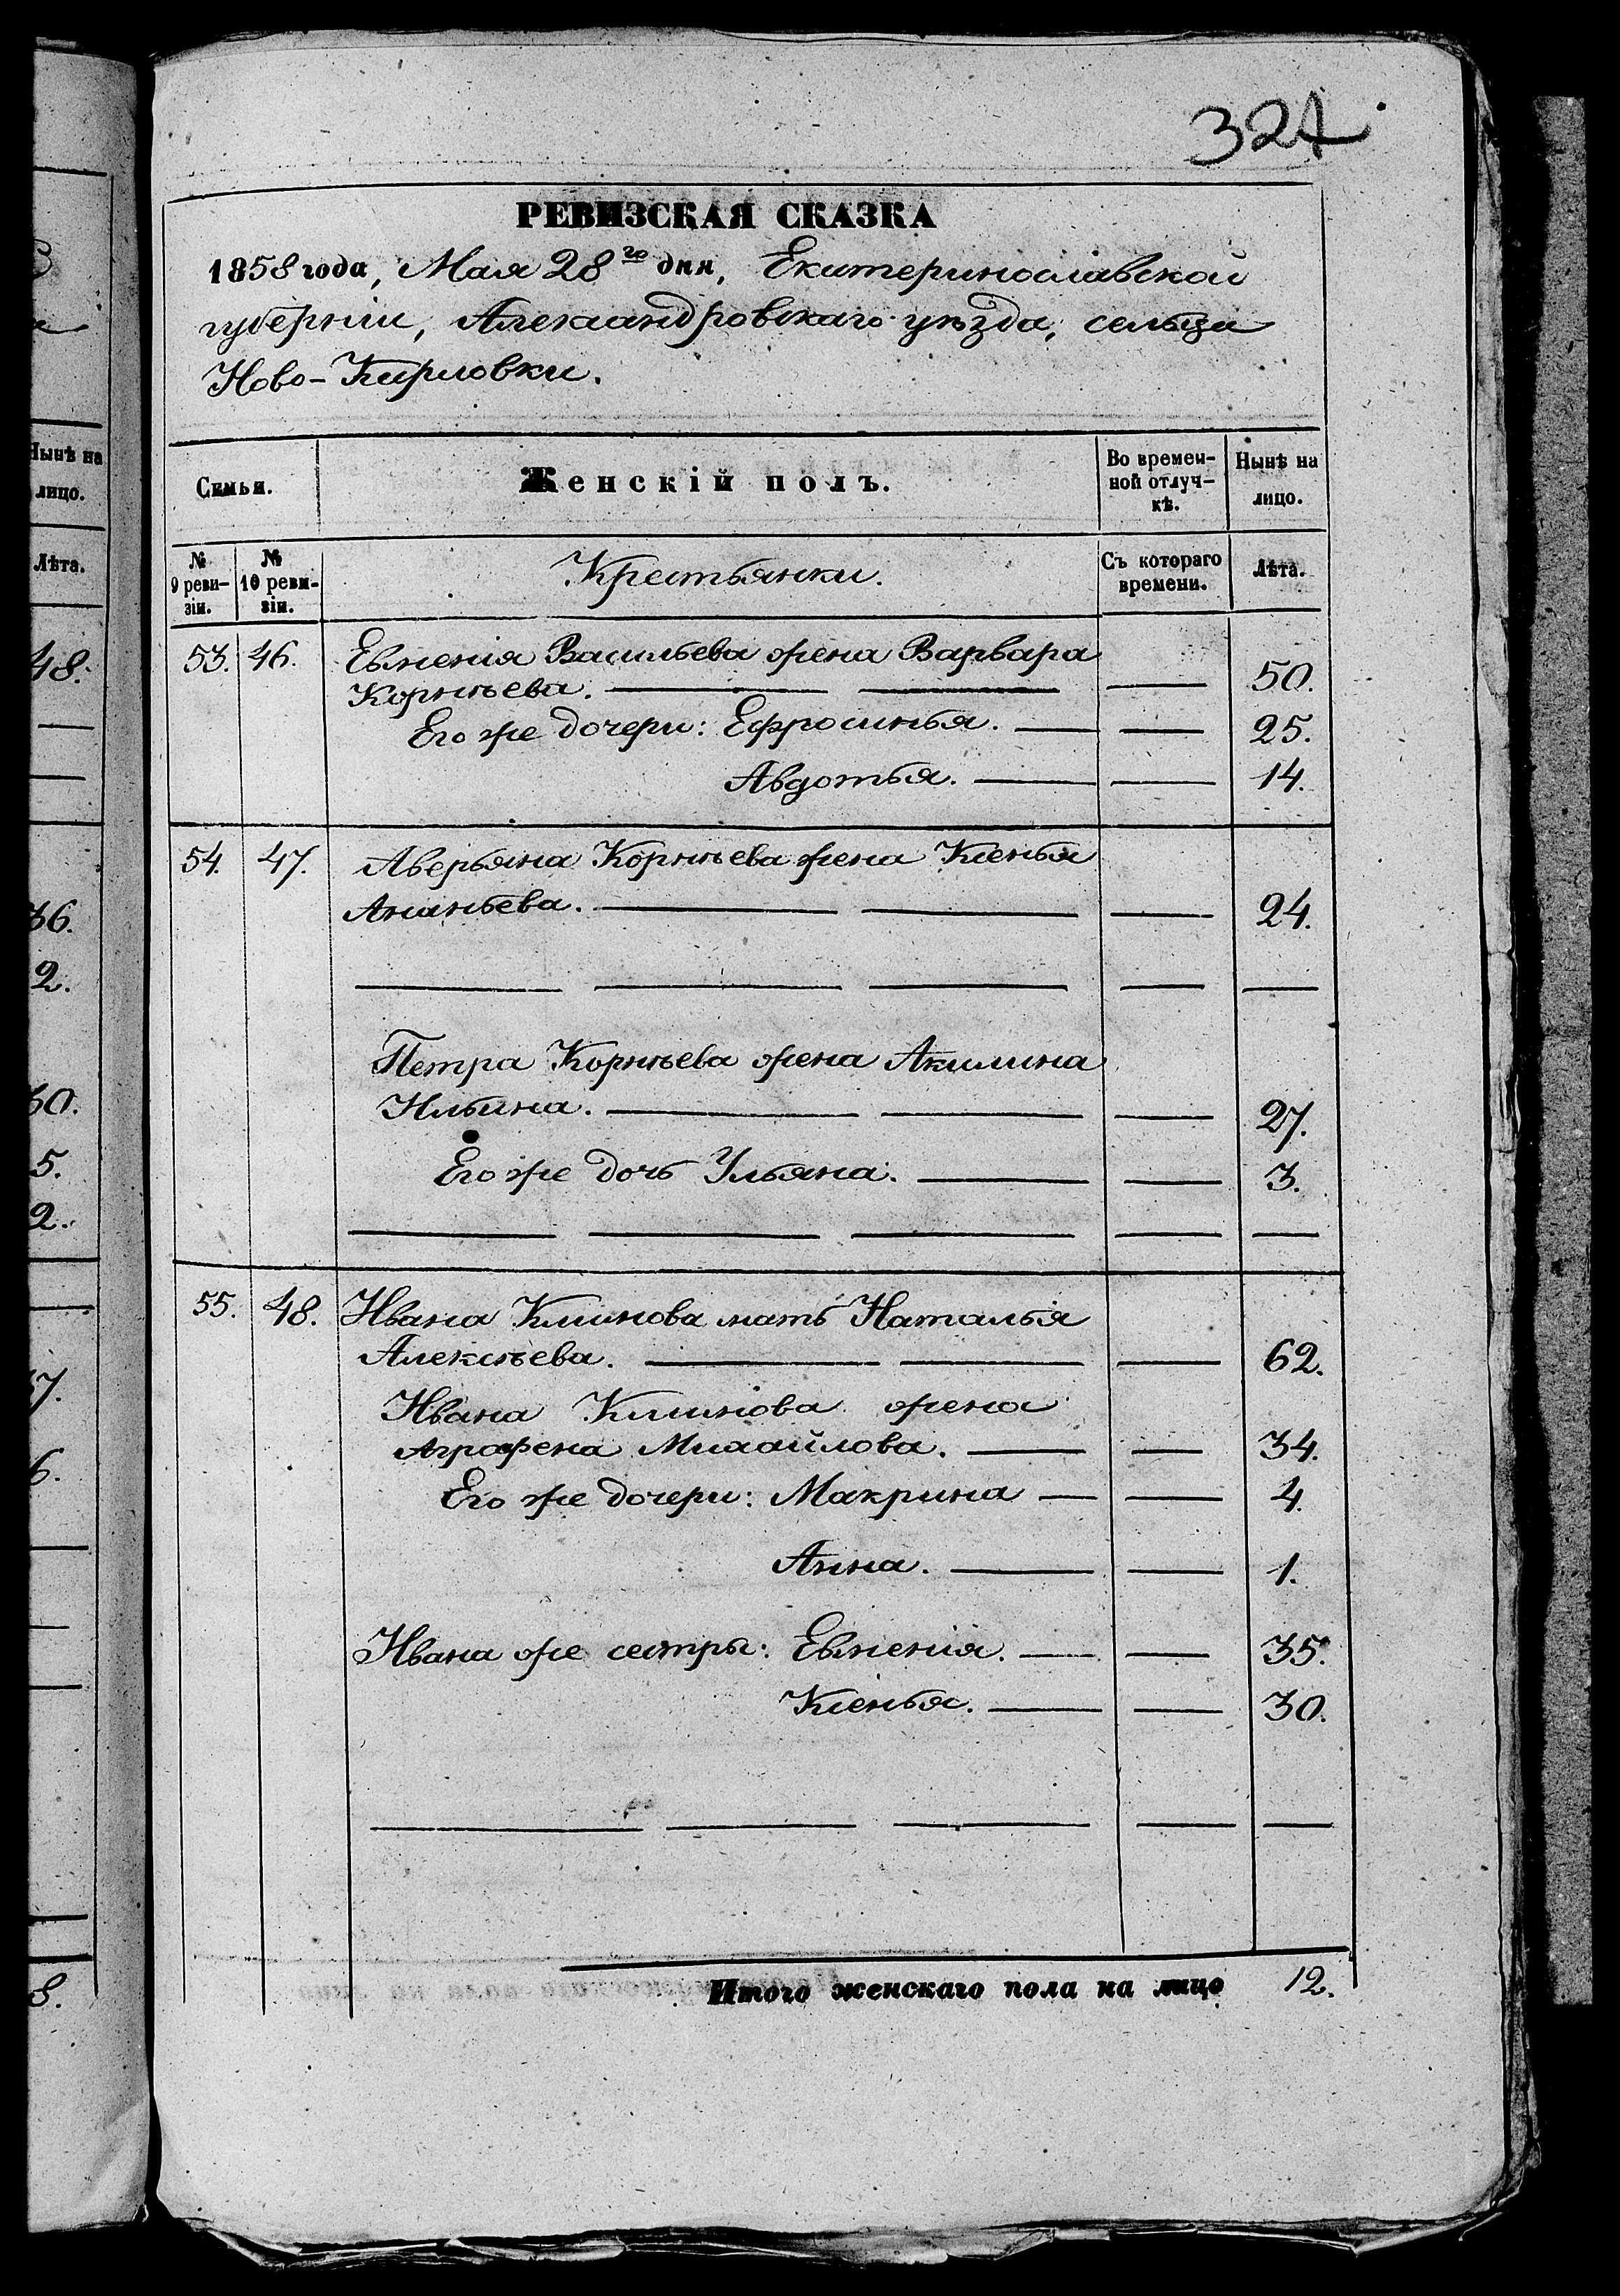 324
РЕВИЗСКАЯ СКАЗКА
1858 года, Мая 28го дня, Екатеринославской
губерніи, Александровскаго уѣзда, сельца
Ново-Кирловки.
Семьи.
Женскій полъ.
Во времен-
ной отлуч-
кѣ.
Нынѣ на
лицо.
№
9 реви-
зіи.
№
10 реви-
зіи.
Крестьянки.
Съ котораго
времени.
Лѣта.
53. 46. Евменія Васильева жена Варвара
Корнѣева. 50.
Его же дочери: Ефросинья. 25.
Авдотья. 14.
54. 47. Аверьяна Корнѣева жена Ксенья
Ананьева. 24.
Петра Корнѣева жена Акилина
Ильина. 27.
Его же дочь Ульяна. 3.
55. 48. Ивана Климова мать Наталья
Алексѣева. 62.
Ивана Климова жена
Аграфена Михайлова. 34.
Его же дочери: Макрина 4.
Анна. 1.
Ивана же сестры: Евменія. 35.
Ксенья. 30.
Итого женскаго пола на лицо 12.
Нынѣ на
лицо.
Лѣта.
48.
36.
2.
30.
5.
2.
7.
6.
8.